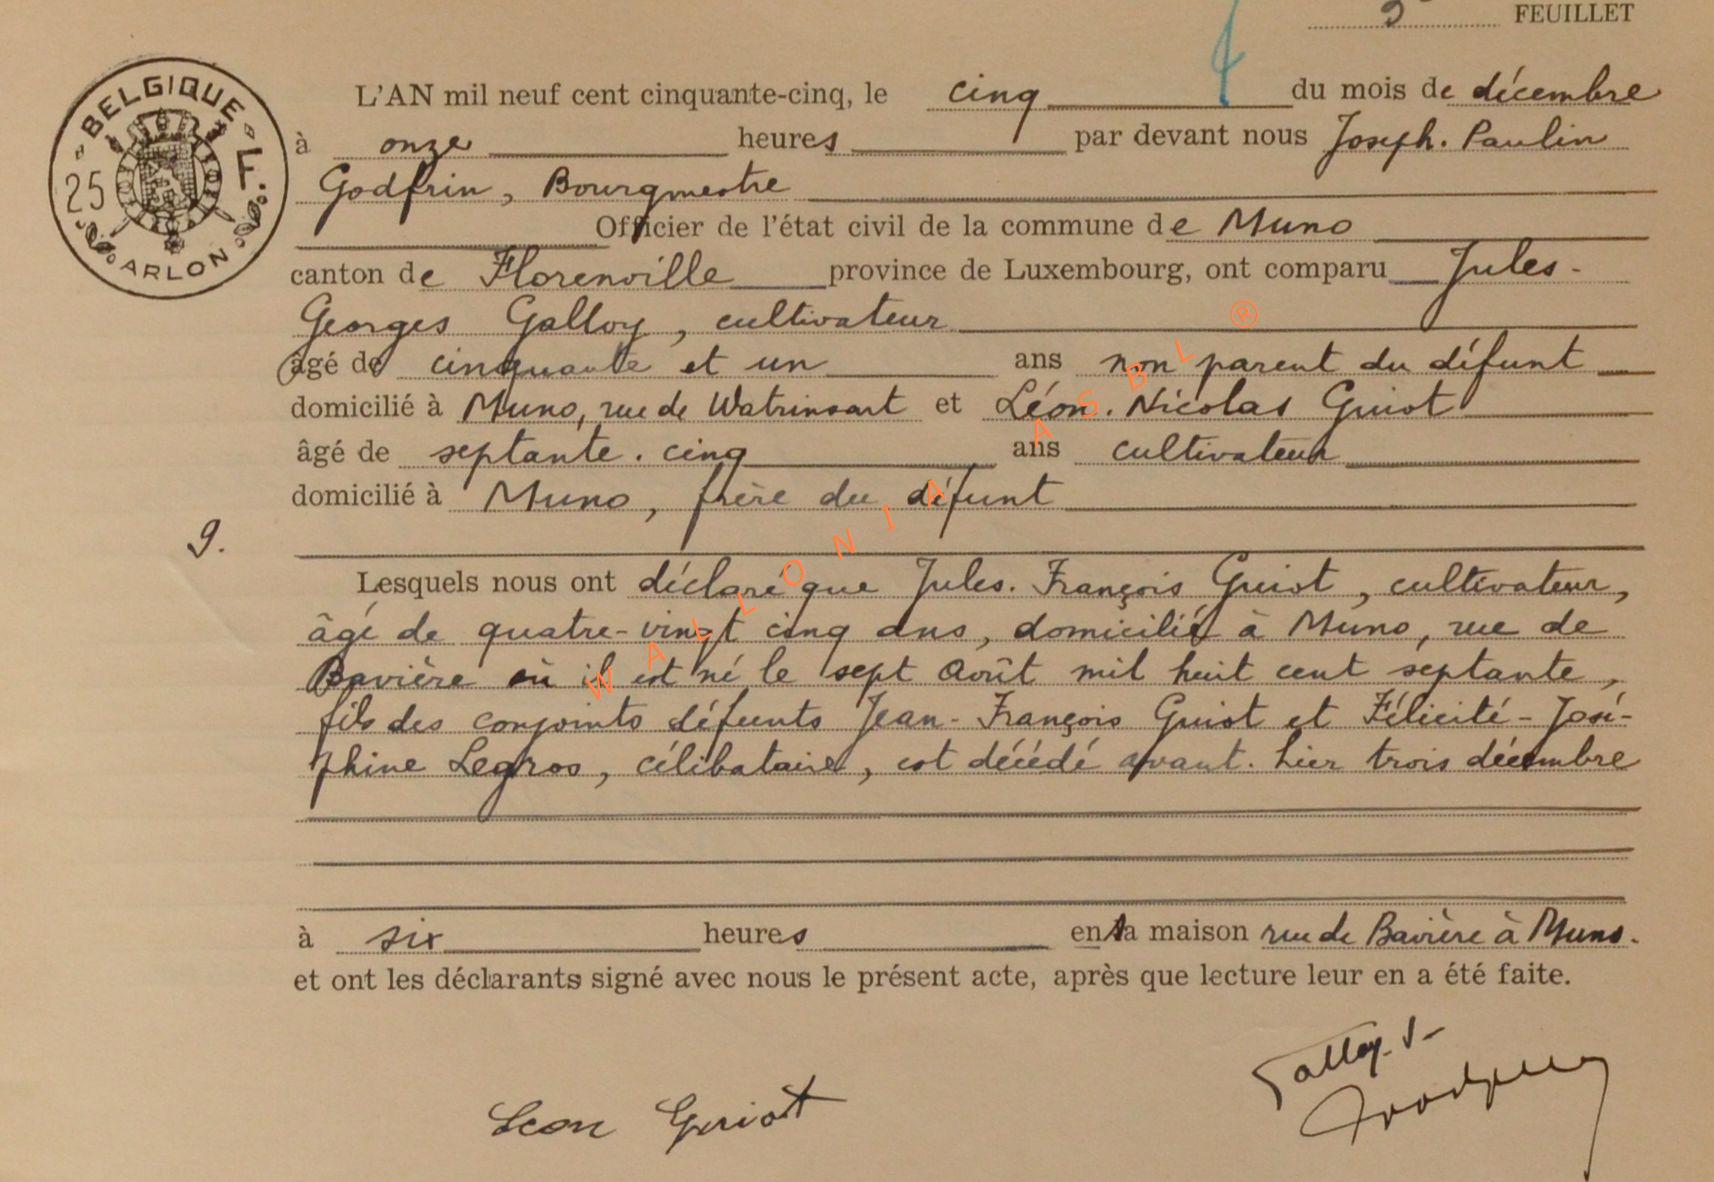 5e FEUILLET
BELGIQUE 25 F. ARLON
L'AN mil neuf cent cinquante-cinq, le cinq du mois de décembre
à onze heures par devant nous Joseph. Paulin
Godfrin, Bourgmestre
Officier de l'état civil de la commune de Muno
canton de Florenville province de Luxembourg, ont comparu Jules-
Georges Galloy, cultivateur
âgé de cinquante et un ans non parent du défunt
domicilié à Muno, rue de Watrinsart et Léon. Nicolas Guiot
âgé de septante. cinq ans cultivateur
domicilié à Muno, frère du défunt
9.
Lesquels nous ont déclaré que Jules. François Guiot, cultivateur,
âgé de quatre-vingt cinq ans, domicilié à Muno, rue de
Bavière où il est né le sept Août mil huit cent septante,
fils des conjoints défunts Jean-François Guiot et Félicité-José-
phine Legros, célibataire, est décédé avant. hier trois décembre
à six heures en sa maison rue de Bavière à Muno.
et ont les déclarants signé avec nous le présent acte, après que lecture leur en a été faite.
Galloy. J-
Leon Guiot
WALLONIA ASBL ®